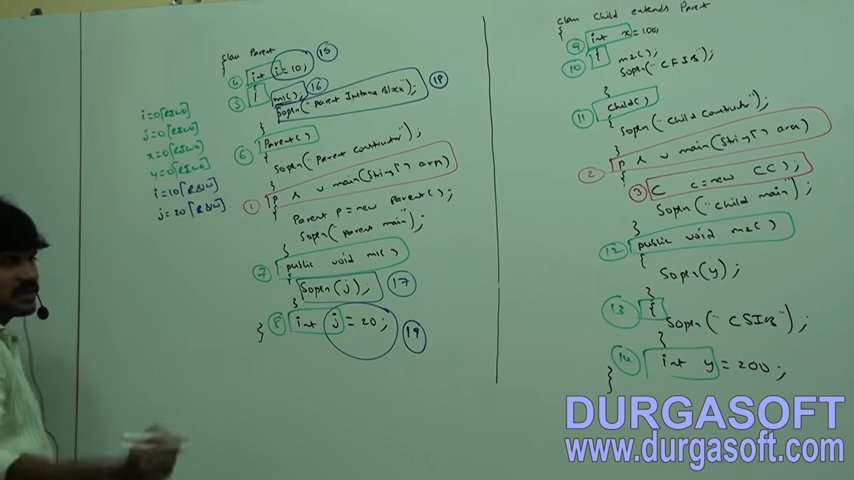 i=0[RIWO]
j=0[RIWO]
x=0[RIWO]
y=0[RIWO]
i=10[R&W]
j=20[R&W]
class Parent
{
④ int i=10; ⑮
⑤ { m1(); ⑯
Sopln("Parent Instance Block"); ⑱
}
⑥ Parent()
{
Sopln("Parent Constructor");
}
① P S V main(String[] args)
{
Parent P=new Parent();
Sopln("parent main");
}
⑦ public void m1()
{
Sopln(j); ⑰
}
⑧ int j=20; ⑲
}
class Child extends Parent
{
⑨ int x=100;
⑩ { m2();
Sopln("CFIB");
}
⑪ Child()
{
Sopln("Child Constructor");
}
② P S V main(String[] args)
{
③ C c=new CC();
Sopln("Child main");
}
⑫ public void m2()
{
Sopln(y);
}
⑬ {
Sopln("CSIB");
}
⑭ int y=200;
}
DURGASOFT
www.durgasoft.com